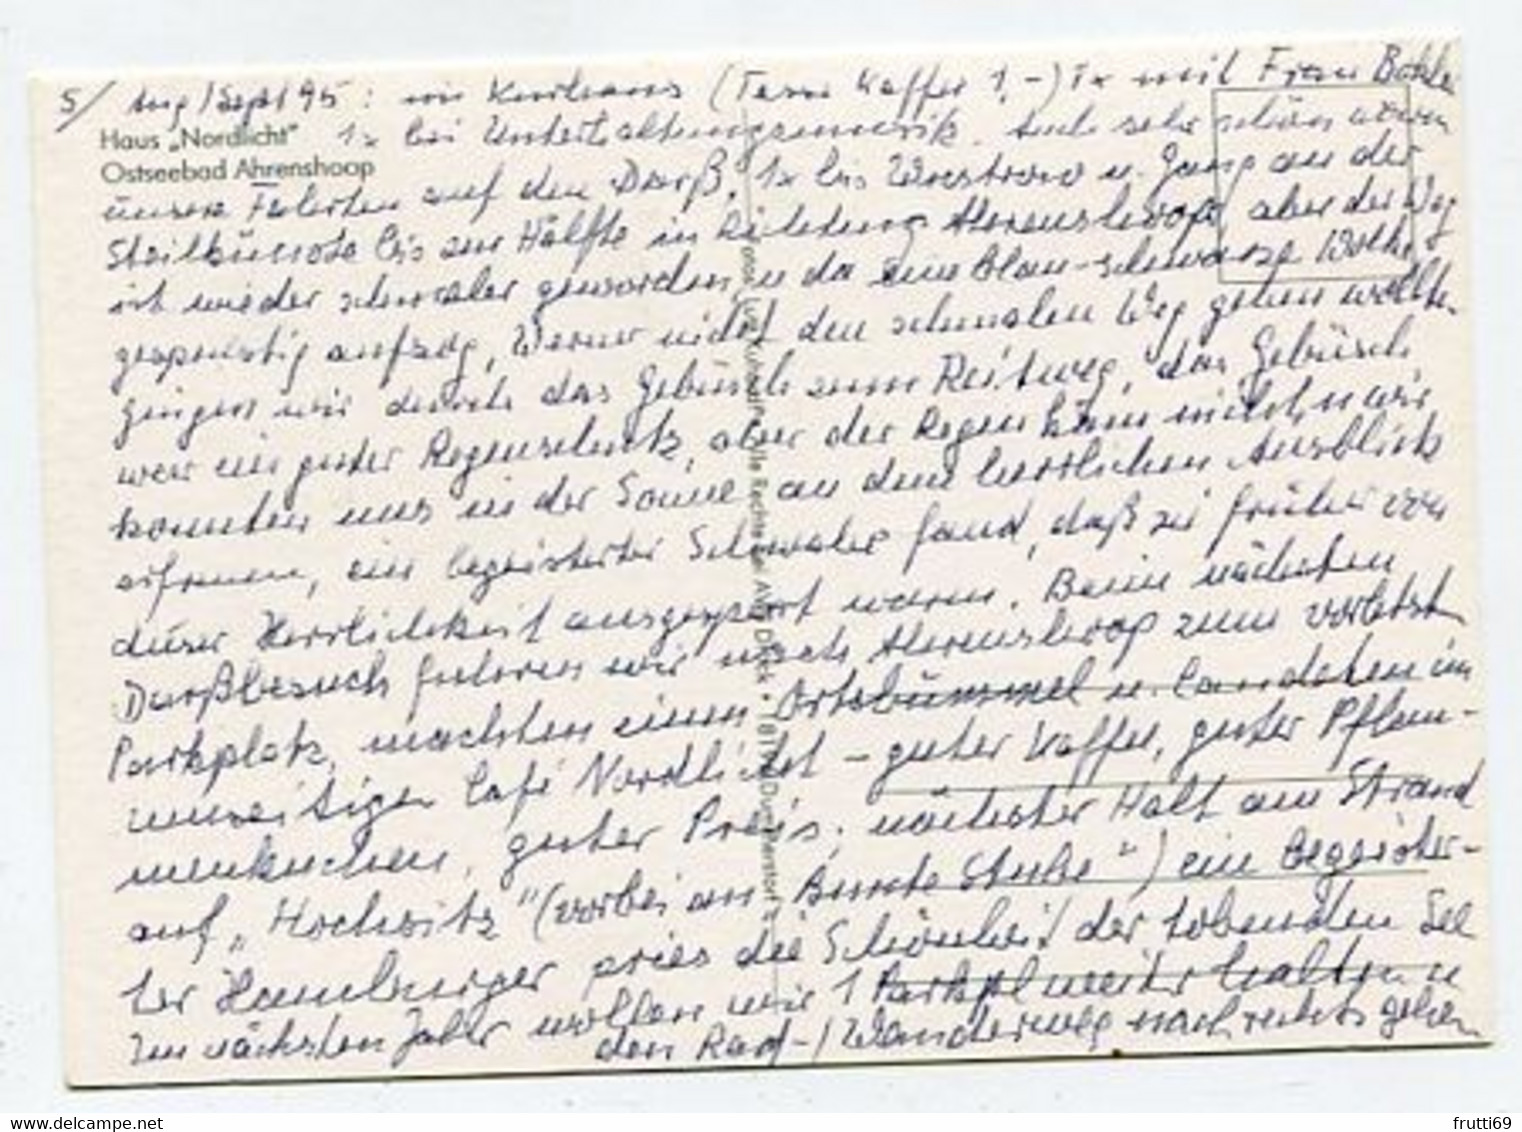 5/ Aug/Sept 95: im Kurhaus (Tasse Kaffee 1,-) 1x mit Frau
Haus „Nordlicht"
1x bei Unterhaltungsmusik. Auch sehr schön waren
Ostseebad Ahrenshoop
unsere Fahrten auf den Darß, 1x bis Wustrow u. Gang an der
Steilküste bis zur Hälfte in Richtung Ahrenshoop aber der Weg
ist wieder schmaler geworden u da eine blau-schwarze Wolke
gespenstig aufzog, Werner nicht den schmalen Weg gehen wollte
gingen wir durch das Gebüsch zum Reitweg, das Gebüsch
war ein guter Regenschutz, aber der Regen kam nicht, u wir
konnten uns in der Sonne an dem herrlichen Ausblick
erfreuen, ein begeisterter Schwabe fand, daß sie früher von
dieser Herrlichkeit ausgesperrt waren. Beim nächsten
Darßbesuch fuhren wir nach Ahrenshoop zum vorletzten
Parkplatz, machten einen Ortsbummel u. landeten im
unseitigen Café Nordlicht - guter Kaffee, guter Pflau-
menkuchen, guter Preis; nächster Halt am Strand
auf „Hochwitz" (vorbei an „Bunte Stube") ein begeister-
ter Hamburger pries die Schönheit der tobenden See
Im nächsten Jahr wollen wir 1 Parkpl weiter halten u
den Rad-/Wanderweg nach rechts gehen
Druck
frutti69